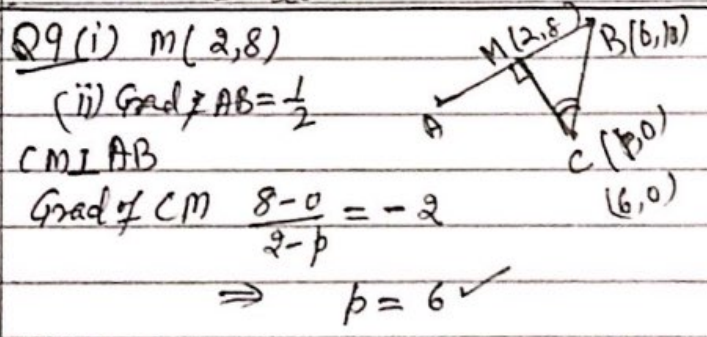 Q9 (i) M(2,8)
(ii) Grad of AB = 1/2
CM ⊥ AB
Grad of CM (8-0)/(2-p) = -2
⇒ p = 6 ✓
M(2,8)
B(6,10)
A
C (p,0)
(6,0)